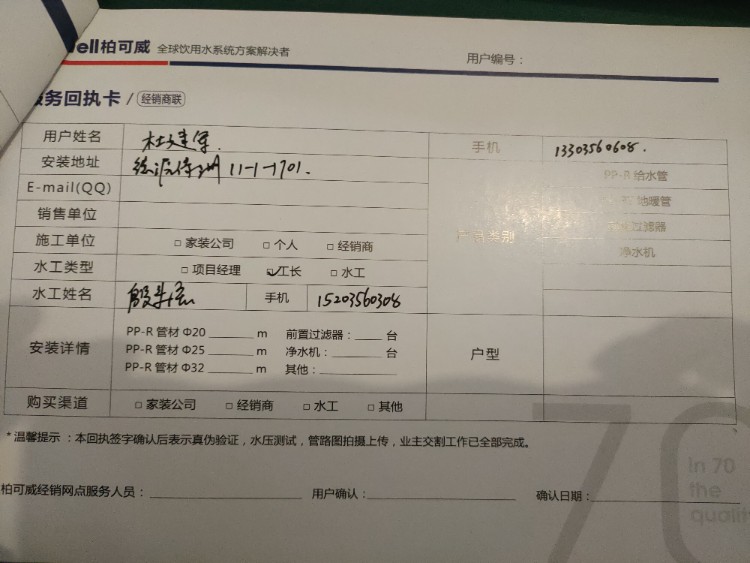 ell柏可威 全球饮用水系统方案解决者
用户编号：
务回执卡 / 经销商联
用户姓名 杜建军. 手机 13303560608.
安装地址 11-1-1701. PP-R 给水管
E-mail(QQ) 地暖管
销售单位 过滤器
施工单位 □ 家装公司 □ 个人 □ 经销商 类别 净水机
水工类型 □ 项目经理 ☑ 工长 □ 水工
水工姓名 手机 15203560308
安装详情 PP-R 管材 Φ20 ______ m 前置过滤器：____ 台 户型
PP-R 管材 Φ25 ______ m 净水机：______ 台
PP-R 管材 Φ32 ______ m 其他：________
购买渠道 □ 家装公司 □ 经销商 □ 水工 □ 其他
*温馨提示：本回执签字确认后表示真伪验证，水压测试，管路图拍摄上传，业主交割工作已全部完成。
70
In 70
the
qualit
柏可威经销网点服务人员：____________ 用户确认：____________ 确认日期：____________